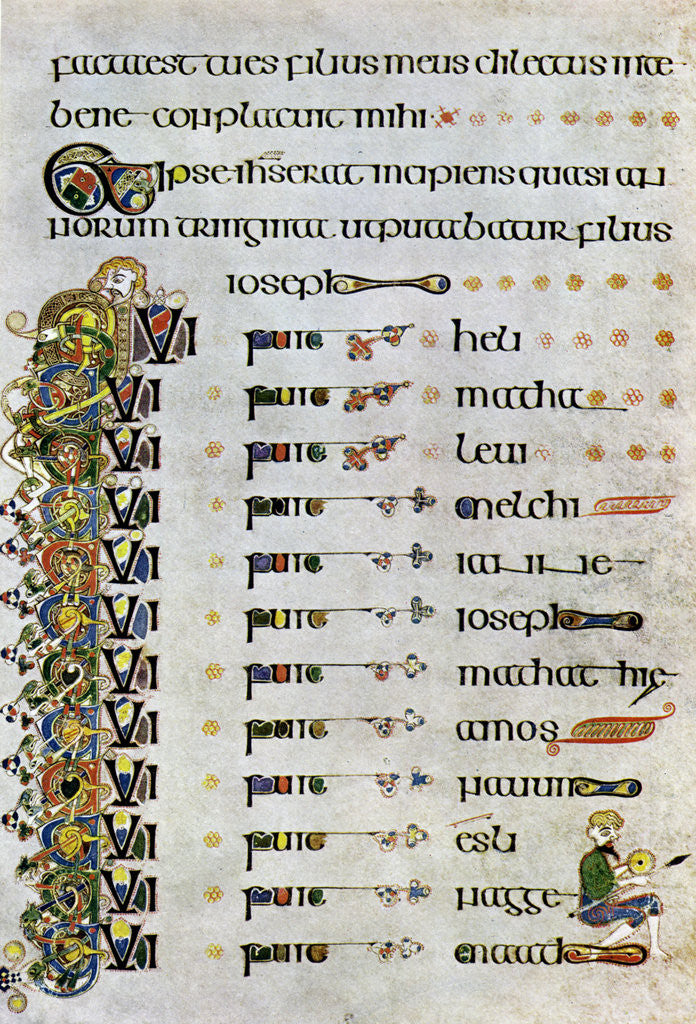 facta est tu es filius meus dilectus in te
bene conplacuit mihi
Et ipse ihs erat incipiens quasi an
norum tringinta ut putabatur filius
ioseph
QVI fuit heli
QVI fuit matha
QVI fuit levi
QVI fuit melchi
QVI fuit iannae
QVI fuit ioseph
QVI fuit mathathie
QVI fuit amos
QVI fuit nauum
QVI fuit esli
QVI fuit nagge
QVI fuit maath